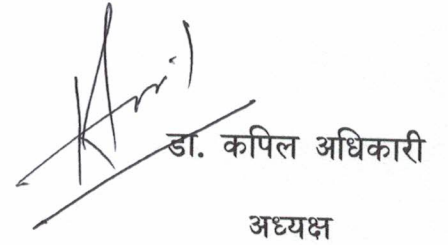 डा. कपिल अधिकारी
अध्यक्ष